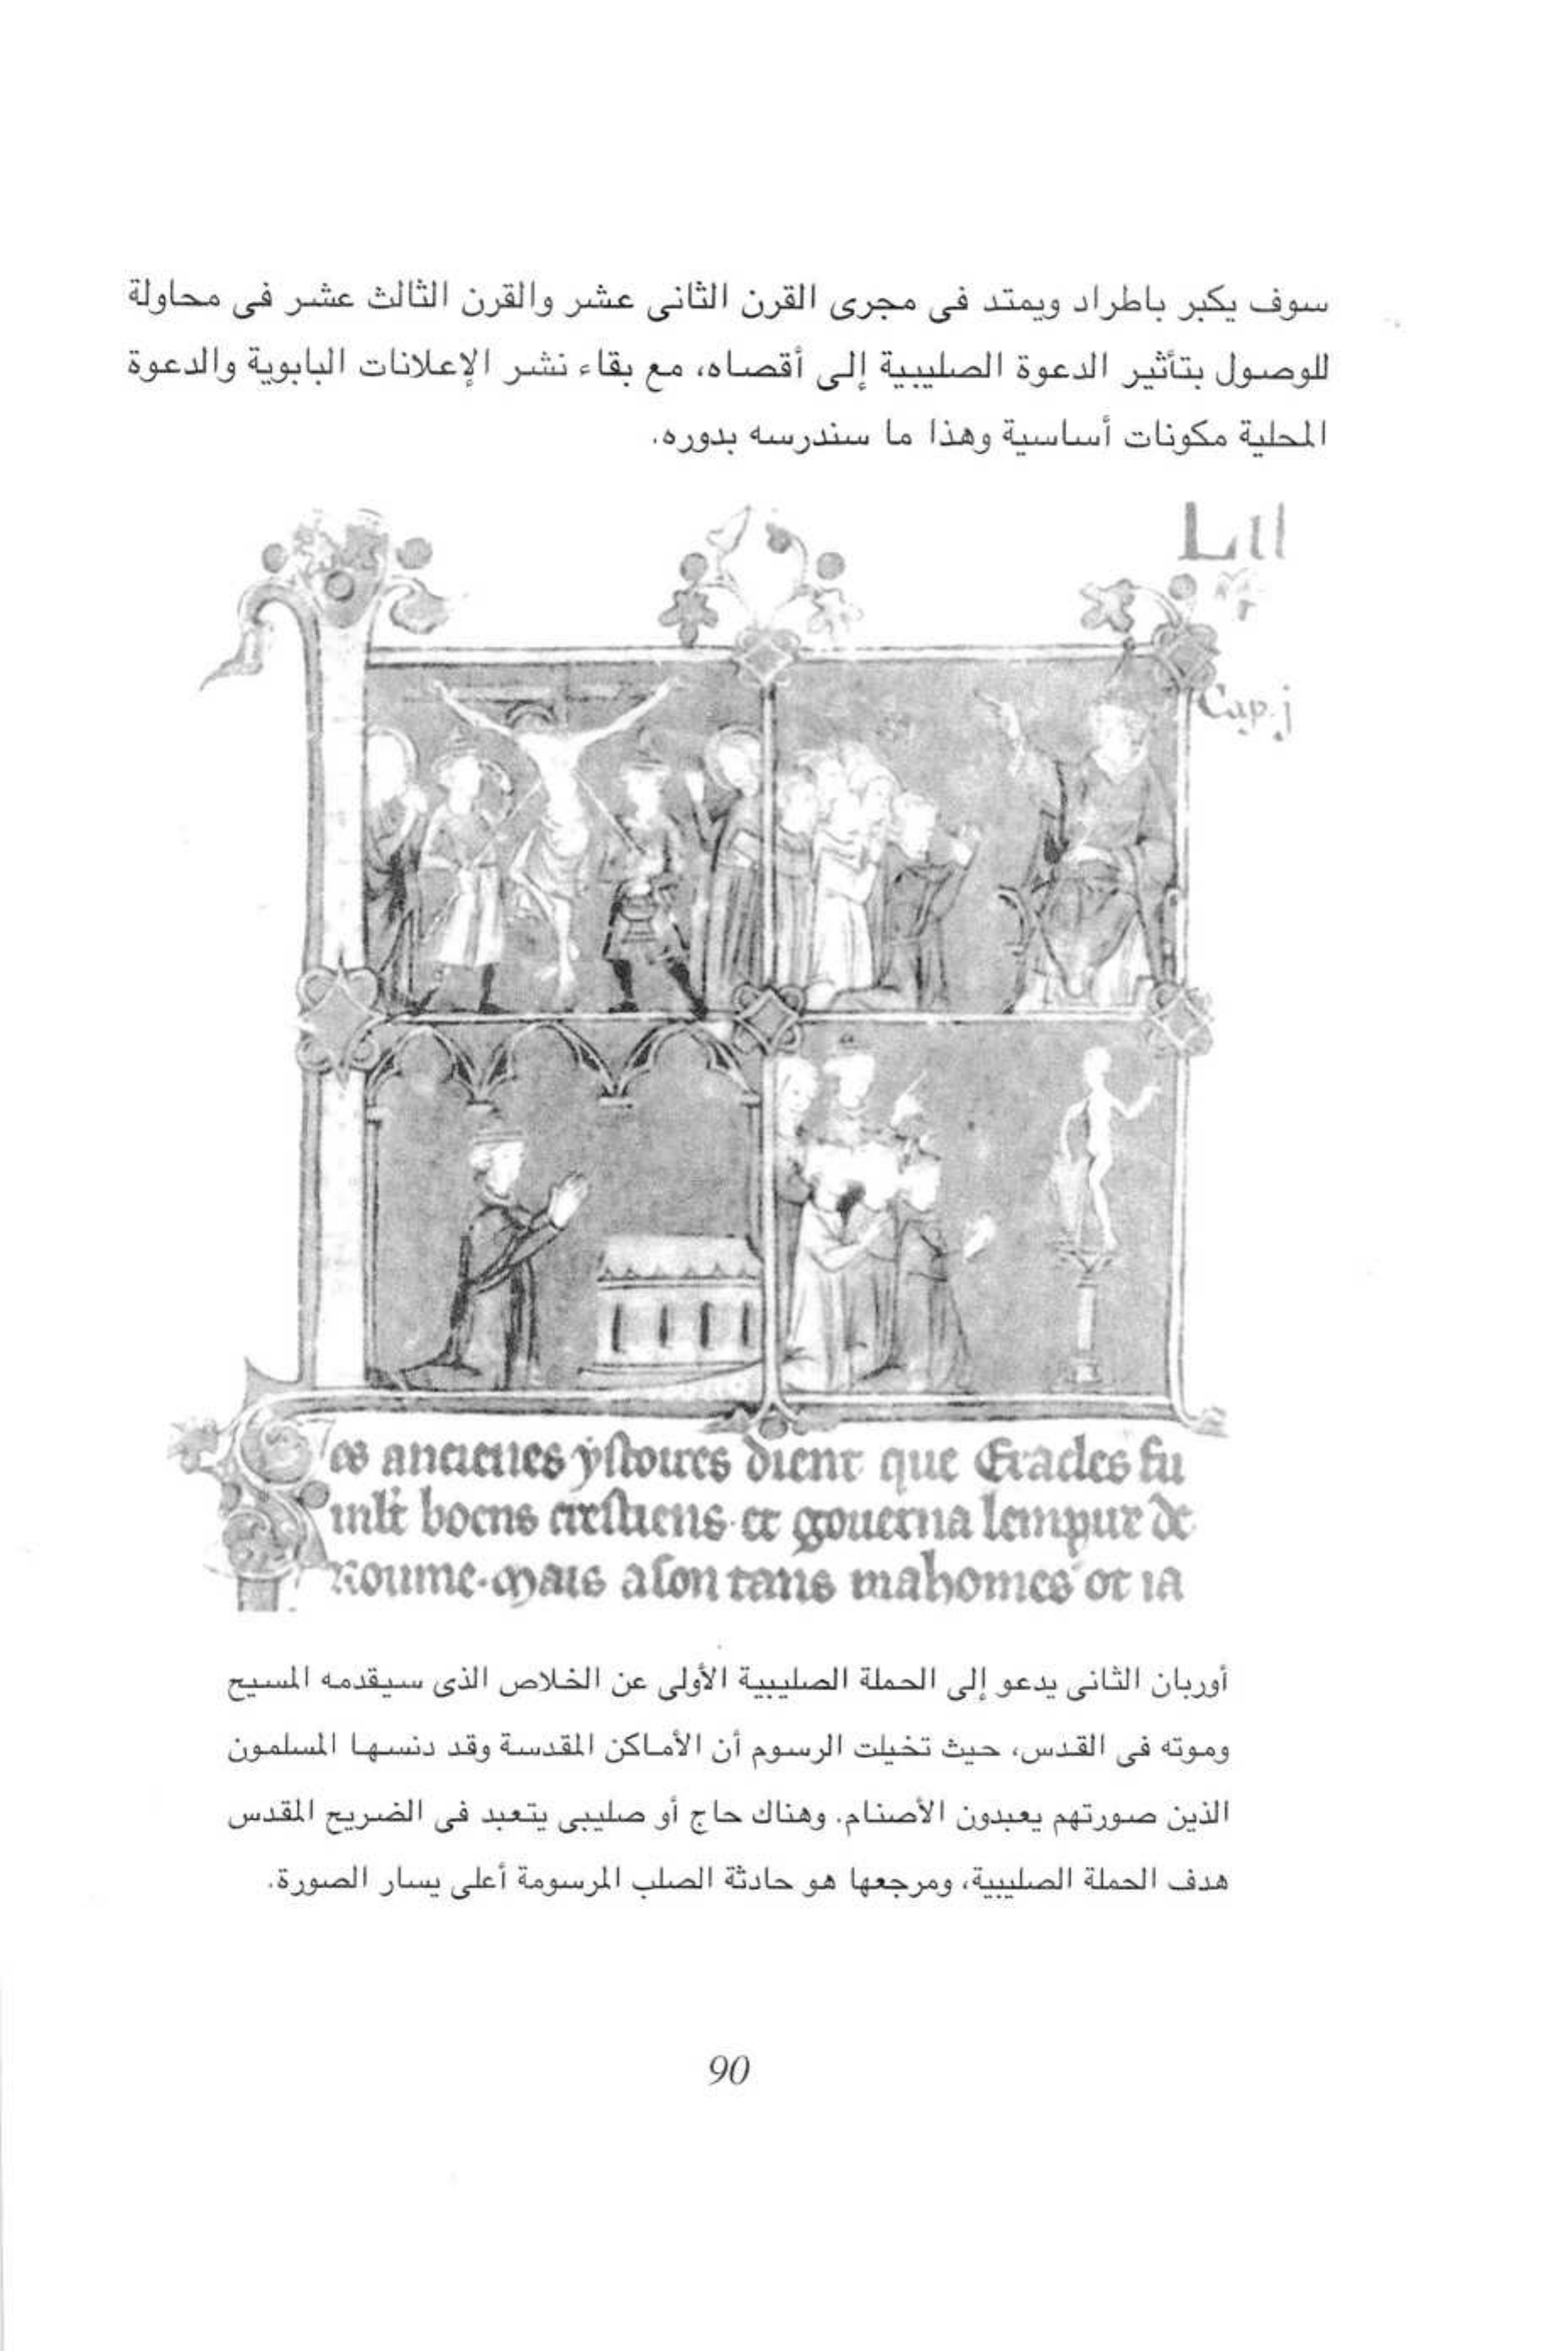 سوف يكبر باطراد ويمتد فى مجرى القرن الثانى عشر والقرن الثالث عشر فى محاولة
للوصول بتأثير الدعوة الصليبية إلى أقصاه، مع بقاء نشر الإعلانات البابوية والدعوة
المحلية مكونات أساسية وهذا ما سندرسه بدوره.
Cap. j
es ancienes ystoires dient que Eracles fu
mlt boens crestiens et gouerna lempire de
Roume. Mais a son tans mahomes ot ia
أوربان الثانى يدعو إلى الحملة الصليبية الأولى عن الخلاص الذى سيقدمه المسيح
وموته فى القدس، حيث تخيلت الرسوم أن الأماكن المقدسة وقد دنسها المسلمون
الذين صورتهم يعبدون الأصنام. وهناك حاج أو صليبى يتعبد فى الضريح المقدس
هدف الحملة الصليبية، ومرجعها هو حادثة الصلب المرسومة أعلى يسار الصورة.
90